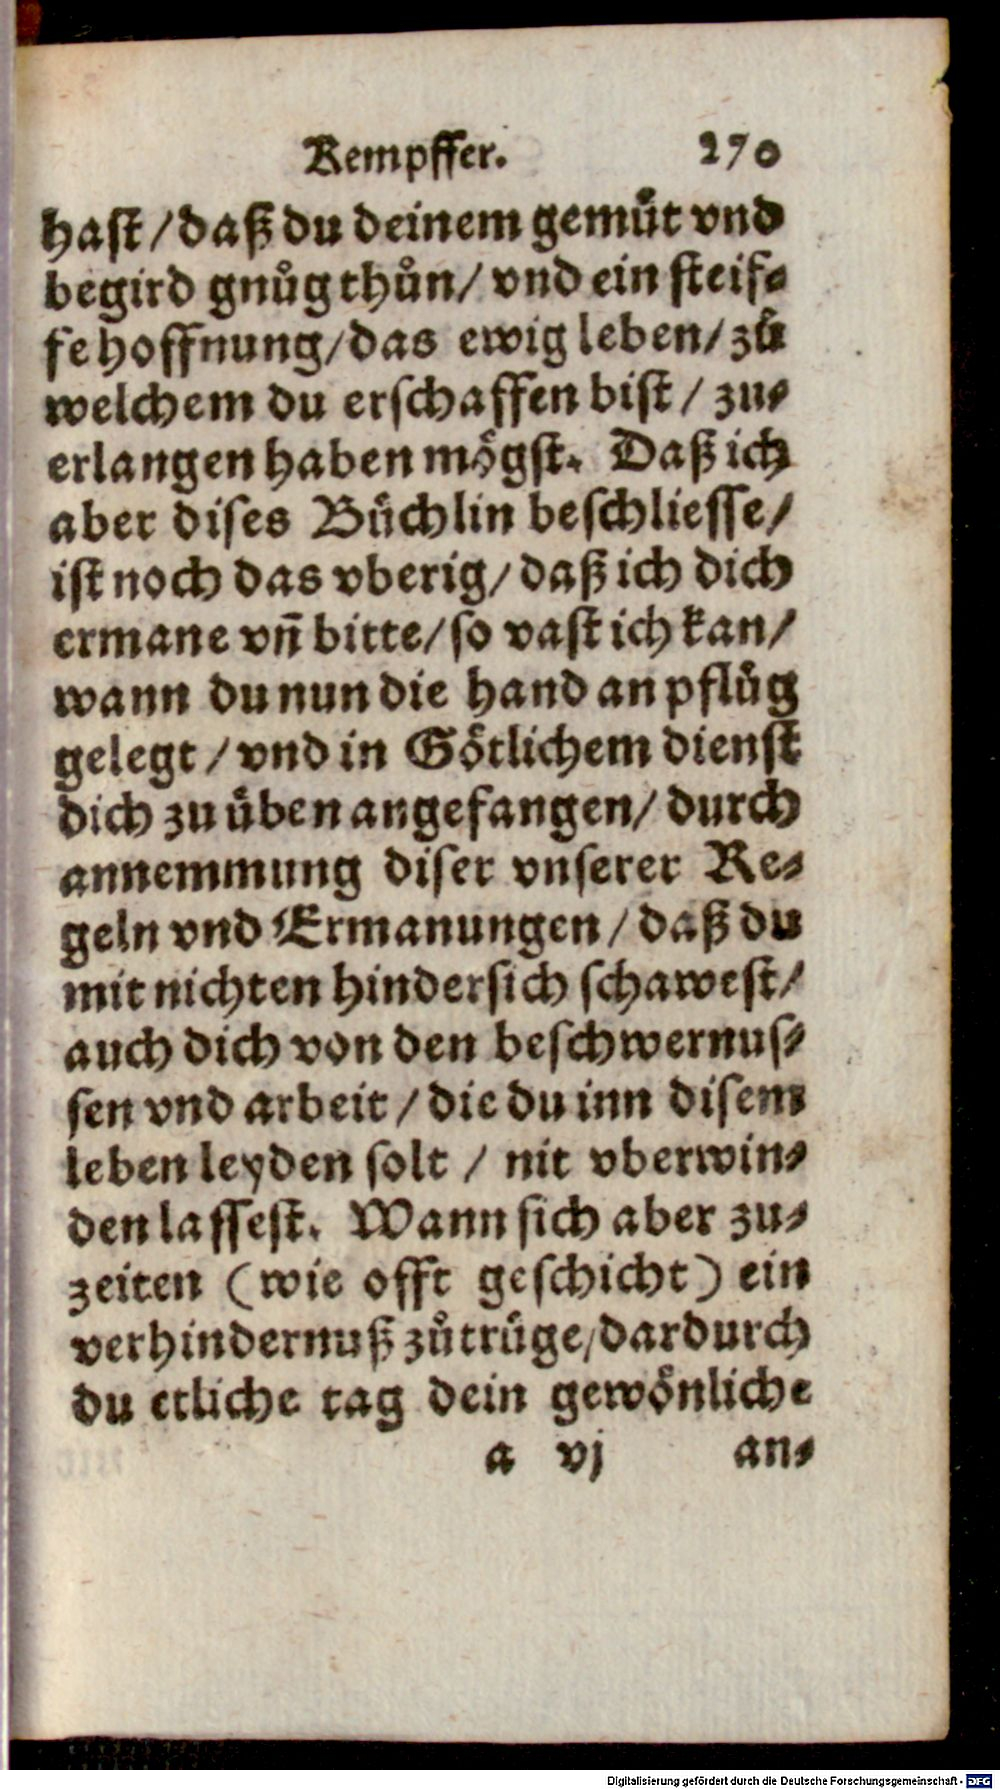 Kempffer. 270
hast / daß du deinem gemuͤt vnd
begird gnuͦg thuͦn / vnd ein steif⸗
fe hoffnung / das ewig leben / zuͦ
welchem du erschaffen bist / zu⸗
erlangen haben moͤgst. Daß ich
aber dises Buͤchlin beschliesse /
ist noch das vberig / daß ich dich
ermane vñ bitte / so vast ich kan /
wann du nun die hand an pfluͤg
gelegt / vnd in Goͤtlichem dienst
dich zu uͤben angefangen / durch
annemmung diser vnserer Re⸗
geln vnd Ermanungen / daß du
mit nichten hindersich schawest /
auch dich von den beschwernus⸗
sen vnd arbeit / die du inn disem
leben leyden solt / nit vberwin⸗
den lassest. Wann sich aber zu⸗
zeiten (wie offt geschicht) ein
verhindernuß zuͦtruͤge / dardurch
du etliche tag dein gewoͤnliche
a vj an⸗
Digitalisierung gefördert durch die Deutsche Forschungsgemeinschaft - DFG